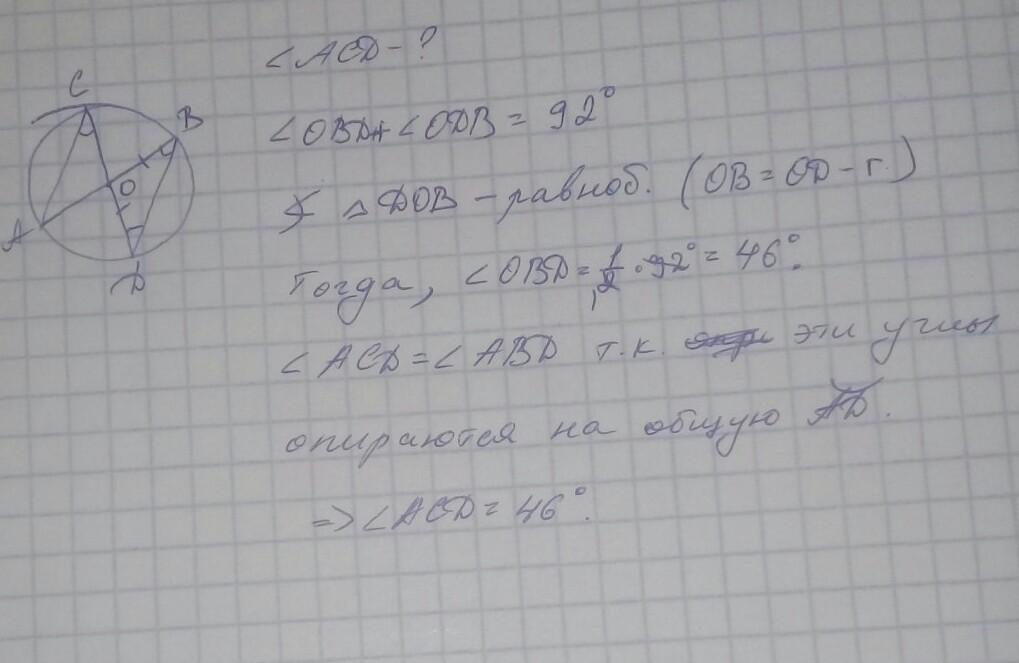 ∠ACD - ?
C
B
O
A
D
∠OBD + ∠ODB = 92°
△DOB - равноб. (OB = OD - r.)
Тогда, ∠OBD = 1/2 · 92° = 46°.
∠ACD = ∠ABD т.к. эти углы
опираются на общую AD.
=> ∠ACD = 46°.